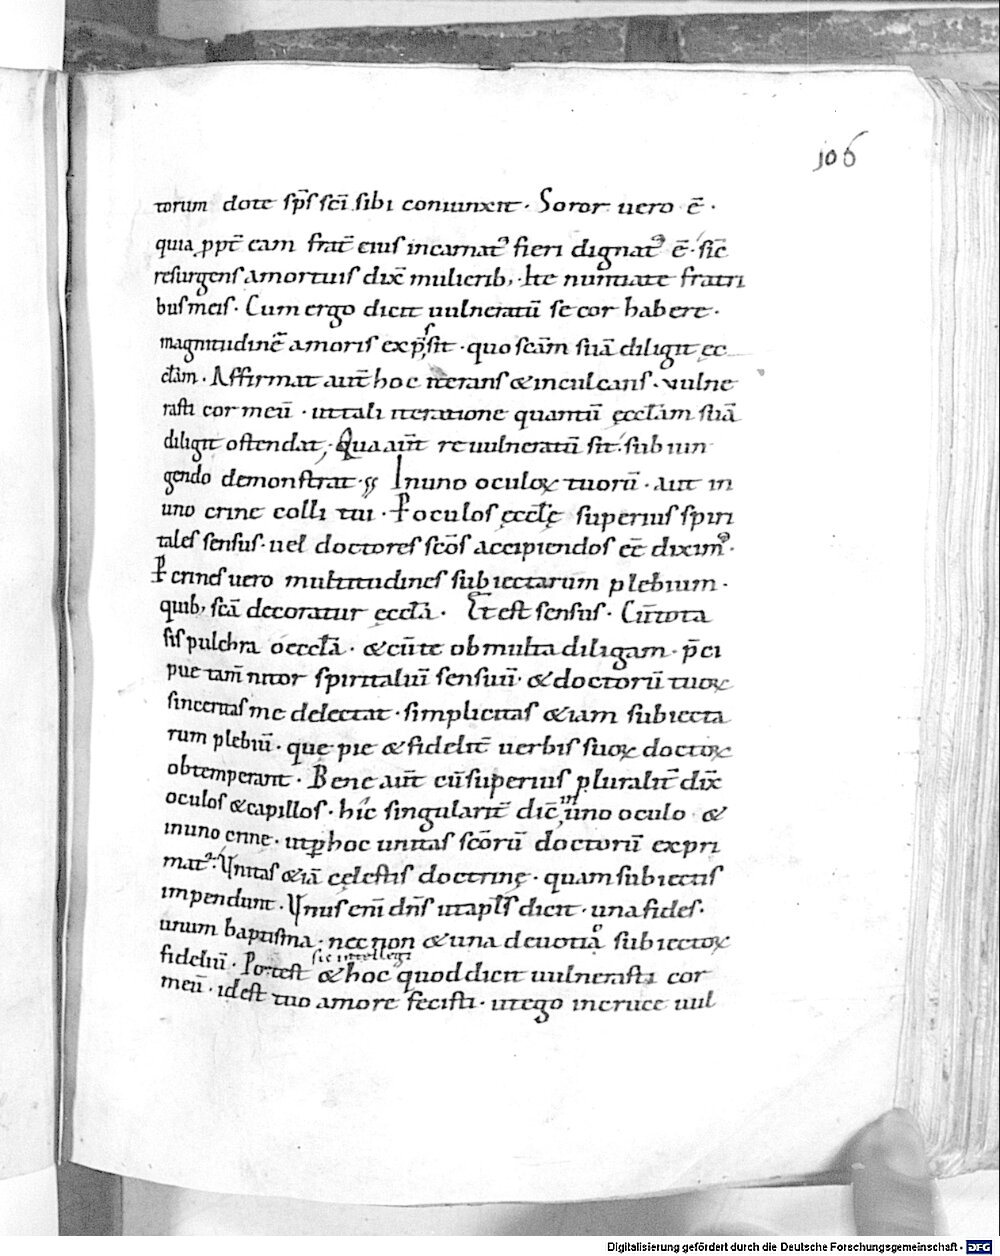 106
torum dote sp̄s sc̄i sibi coniunxit · Soror uero ē ·
quia ꝓpt̄ eam frat̄ eius incarnat᷒ fieri dignat᷒ ē · sic̄
resurgens amortuis dix̄ mulierib; · Ite nuntiate fratri
bus meis · Cum ergo dicit uulneratū se cor habere ·
magnitudinē amoris exp̄ssit · quo sc̄am suā diligit ec
cl̄am · Affirmat aut̄ hoc iterans & inculcans · uulne
rasti cor meū · ut tali iteratione quantū ęccl̄am suā
diligit ostendat; · Qua aut̄ re uulneratū sit · subiun
gendo demonstrat · Inuno oculoꝝ tuorū · aut in
uno crine colli tui · P̄ oculos ęccl̄ę superius spiri
tales sensus · uel doctores sc̄os accipiendos eē dixim᷒ ·
P̄ crines uero multitudines subiectarum plebium ·
quib; sc̄a decoratur ęccl̄a · Et est sensus · Cū tota
sis pulchra o ęccl̄a · & cū te ob multa diligam · p̄ci
pue tam̄ nitor spiritaliū sensuū · & doctorū tuoꝝ
sinceritas me delectat · simplicitas &iam subiecta
rum plebiū · que pie & fidelit̄ uerbis suoꝝ doctoꝝ
obtemperant · Bene aut̄ cū superius pluralit̄ dix̄
oculos & capillos · hic singularit̄ dic̄ in uno oculo &
inuno crine · ut ꝑ hoc unitas sc̄orū doctorū expri
mat᷒ · Vnitas &iā cęlestis doctrinę · quam subiectis
impendunt · Vnus eni dn̄s ut apl̄s dicit · una fides ·
unum baptisma · nec non & una deuotio subiectoꝝ
fideliū · Potest sic intellegi & hoc quod dicit uulnerasti cor
meū · id est tuo amore fecisti · ut ego in cruce uul
Digitalisierung gefördert durch die Deutsche Forschungsgemeinschaft - DFG